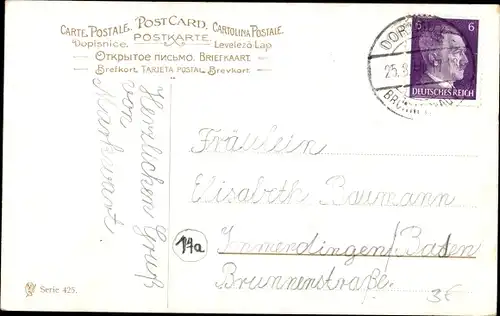 CARTE POSTALE. POSTCARD. CARTOLINA POSTALE.
Dopisnice. POSTKARTE. Levelező Lap
ОТКРЫТОЕ ПИСЬМО. BRIEFKAART.
Brefkort. TARJETA POSTAL. Brevkort.
6
DEUTSCHES REICH
25. 8.
Herzlichen Gruß
von
Markwart
Fräulein
Elisabeth Baumann
17a
Immerdingen/Baden
Brunnenstraße.
Serie 425.
3€